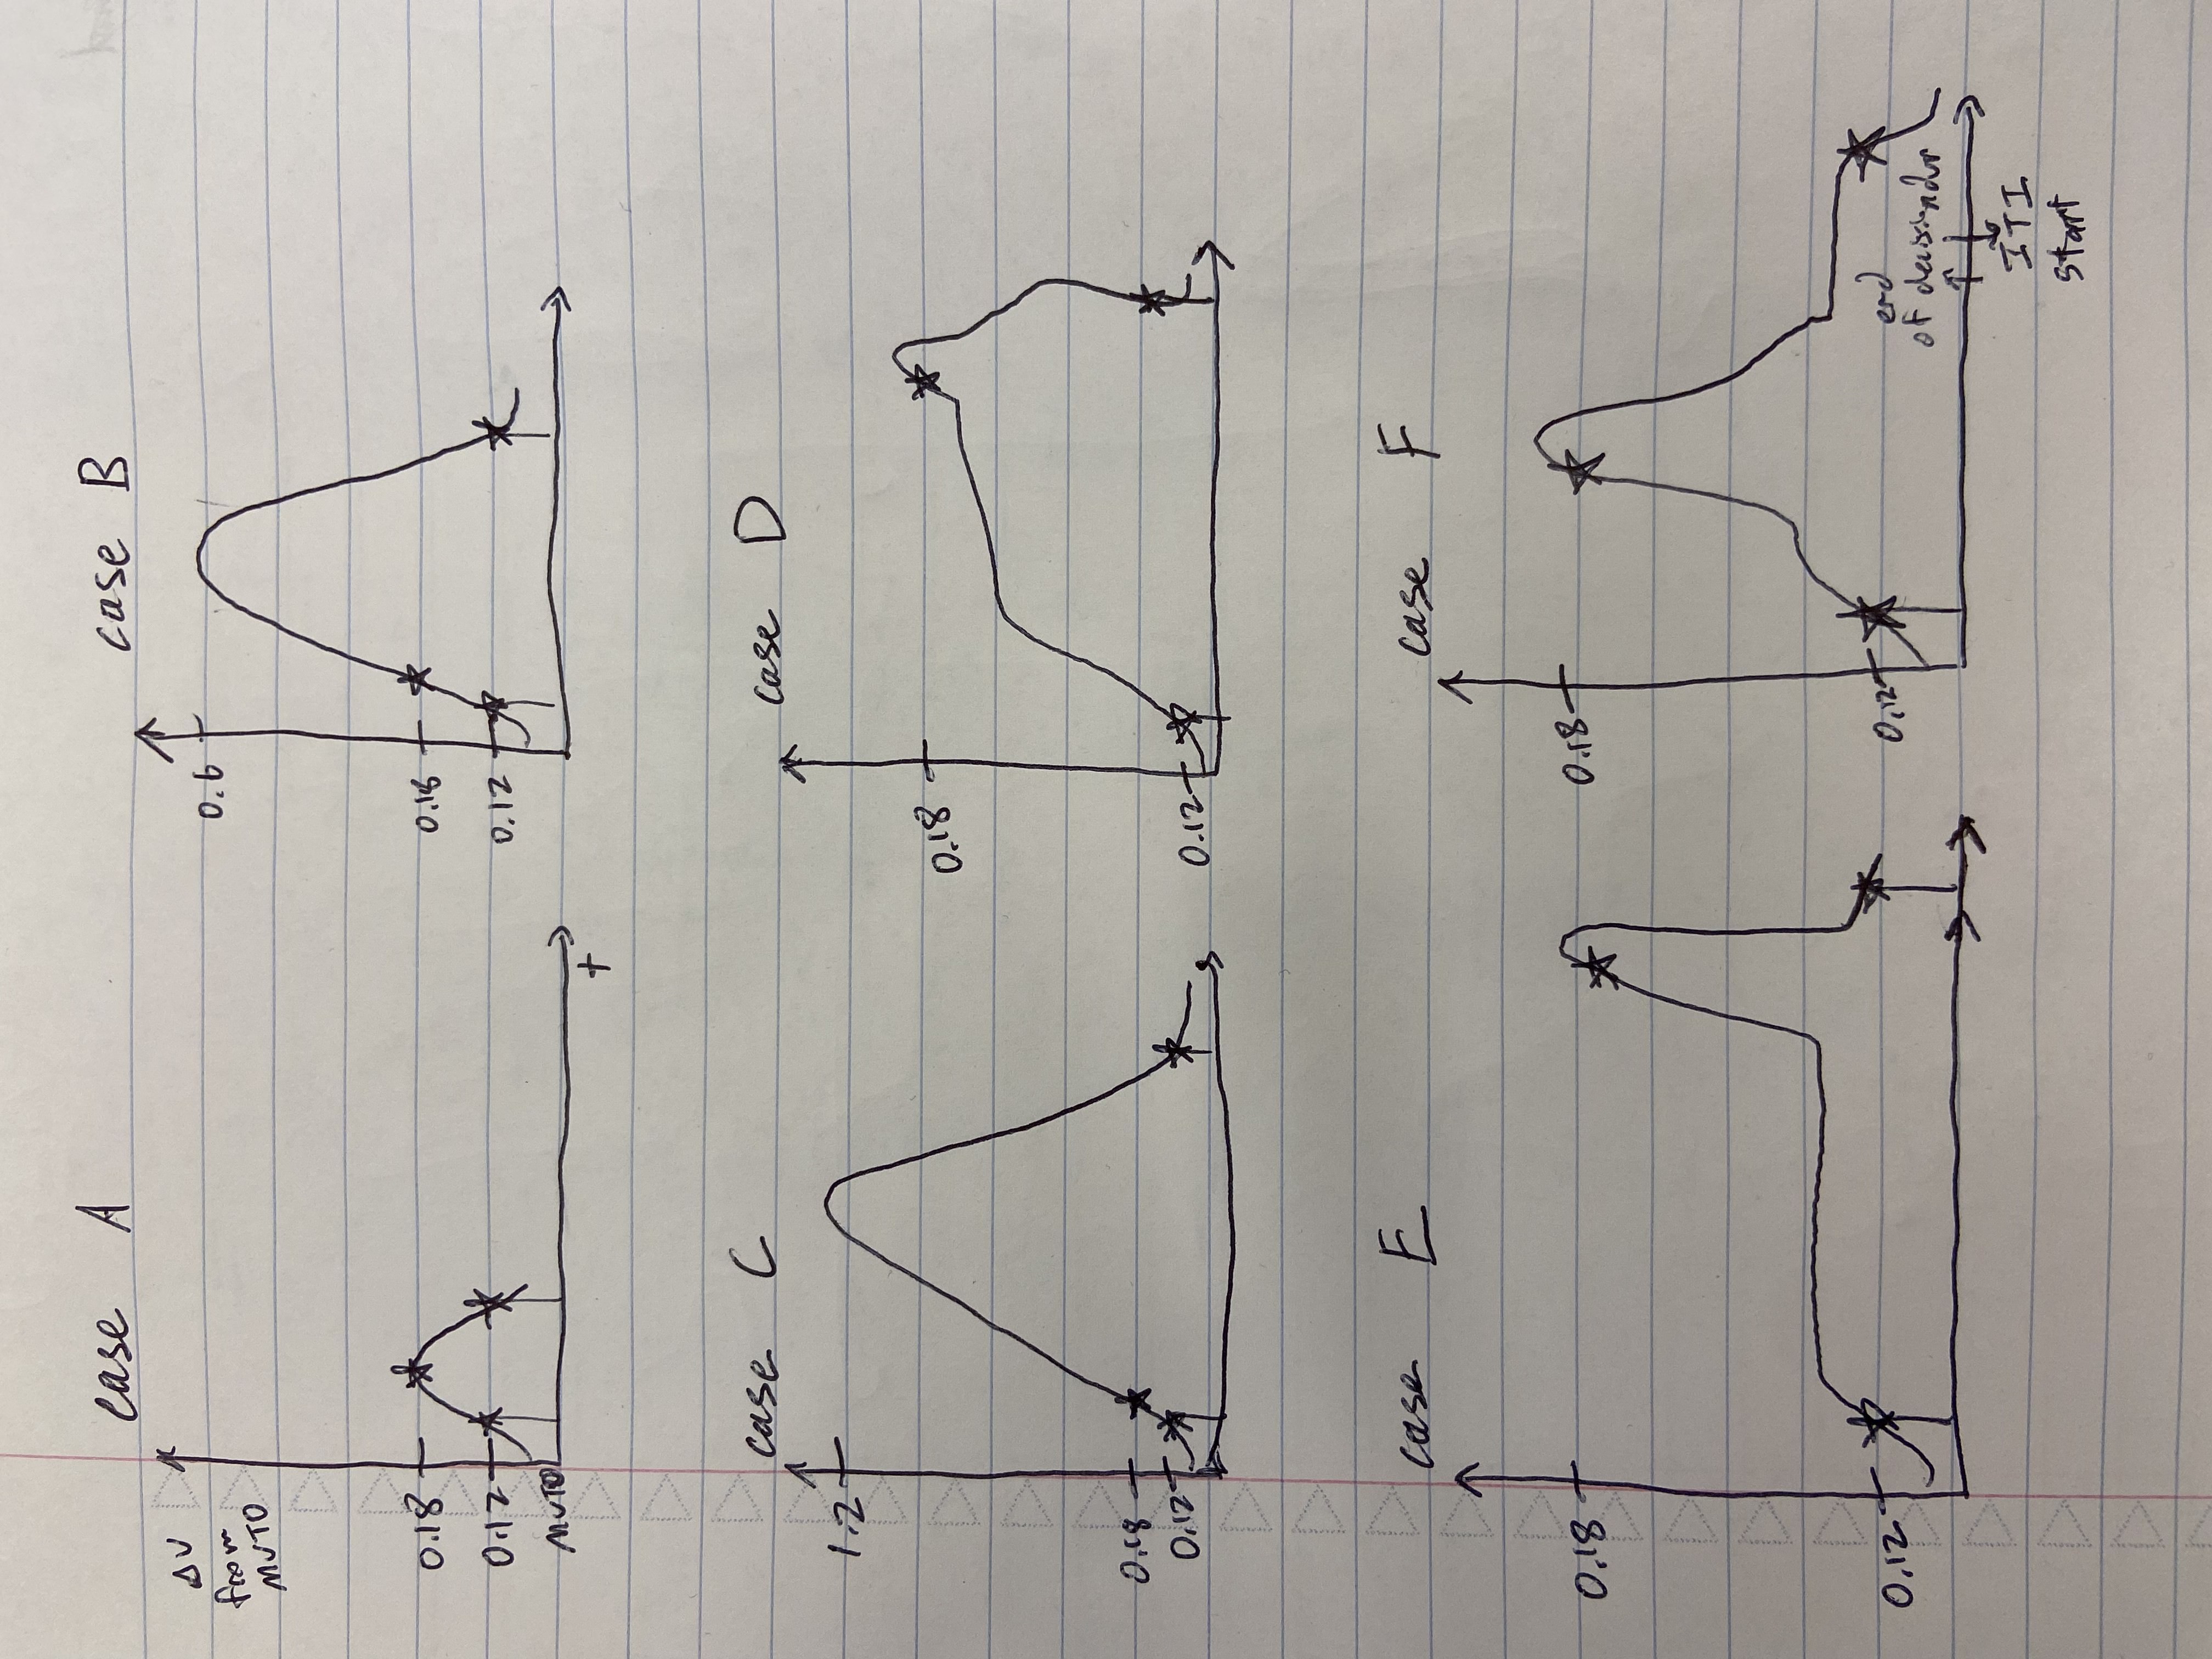 case A
ΔV
from
MVTO
0.18
0.12
MVTO
t
case B
0.6
0.18
0.12
case C
1.2
0.18
0.12
case D
0.18
0.12
case E
0.18
0.12
case F
0.18
0.12
end
of decision dur
ITI
start